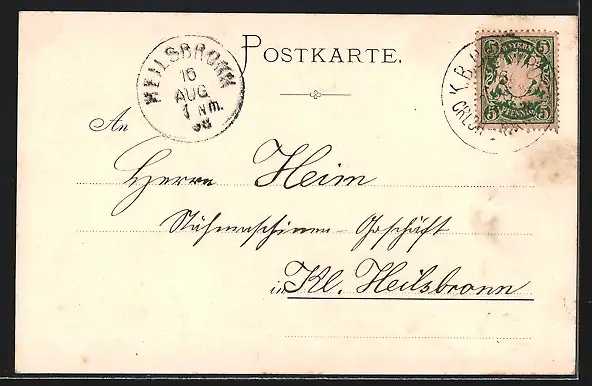 POSTKARTE.
HEILSBRONN
16
AUG.
1 Nm.
98
K.B.
5 BAYERN 5
5 PFENNIG 5
An
Herrn Heim
Nähmaschinen-Geschäft
in Kl. Heilsbronn